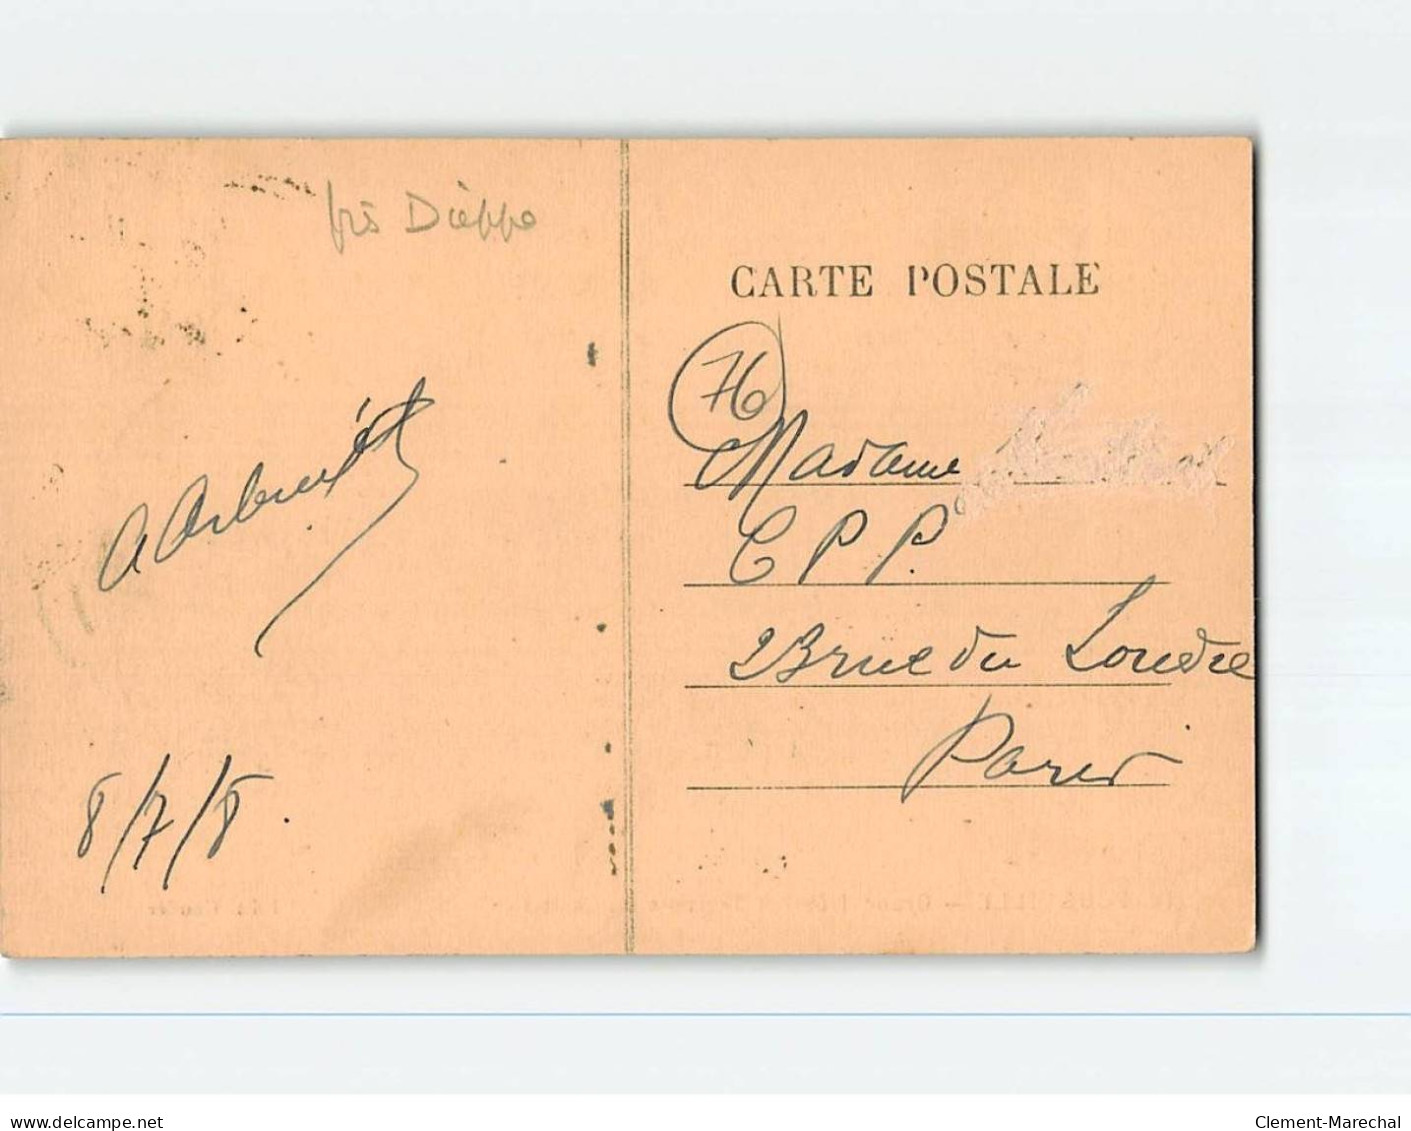 près Dieppe
CARTE POSTALE
76
Madame
C P P.
8/7/8.
23 rue du Londre
Paris
www.delcampe.net
Clement-Marechal